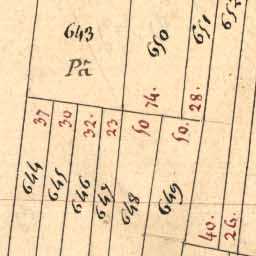 643
Pã
650
651
652
74.
28.
37
30
32.
23
50
50.
644
645
646
647
648
649
40.
26.